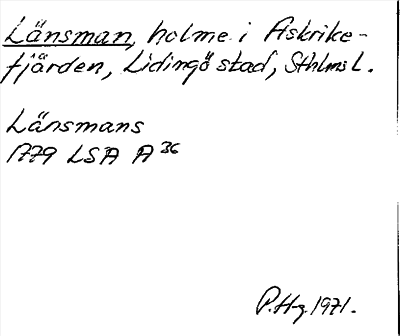 Länsman, holme i Askrike-
fjärden, Lidingö stad, Sthlms l.
Länsmans
1779 LSA A 36
P.Hg. 1971.